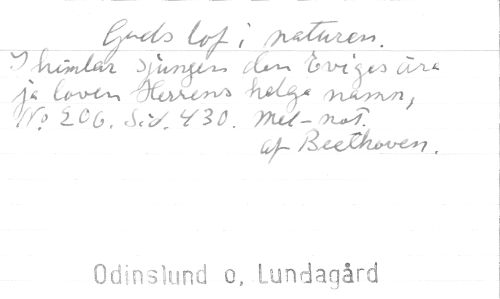 Guds lof i naturen.
I himlar sjungen den Eviges ära
ja loven Herrens helga namn,
No 206. Sid. 430. Mel-not.
af Beethoven.
Odinslund o, Lundagård